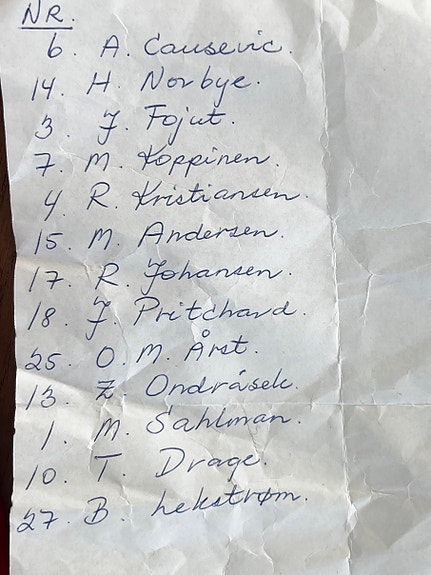 NR.
6. A. Causevic.
14. H. Norbye.
3. J. Fojut.
7. M. Koppinen.
4. R. Kristiansen.
15. M. Andersen.
17. R. Johansen.
18. J. Pritchard.
25. O. M. Årst.
13. Z. Ondrásek.
1. M. Sahlman.
10. T. Drage.
27. B. hekstrøm.